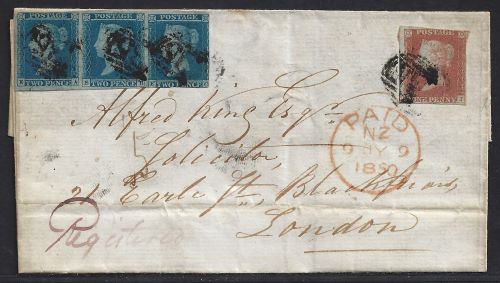 POSTAGE POSTAGE POSTAGE
TWO PENCE TWO PENCE TWO PENCE
POSTAGE
ONE PENNY
Alfred King Esqr.
Solicitor,
21 Earle St, Blackfriars
London
PAID
NZ
9 MY 9
1850
Registered